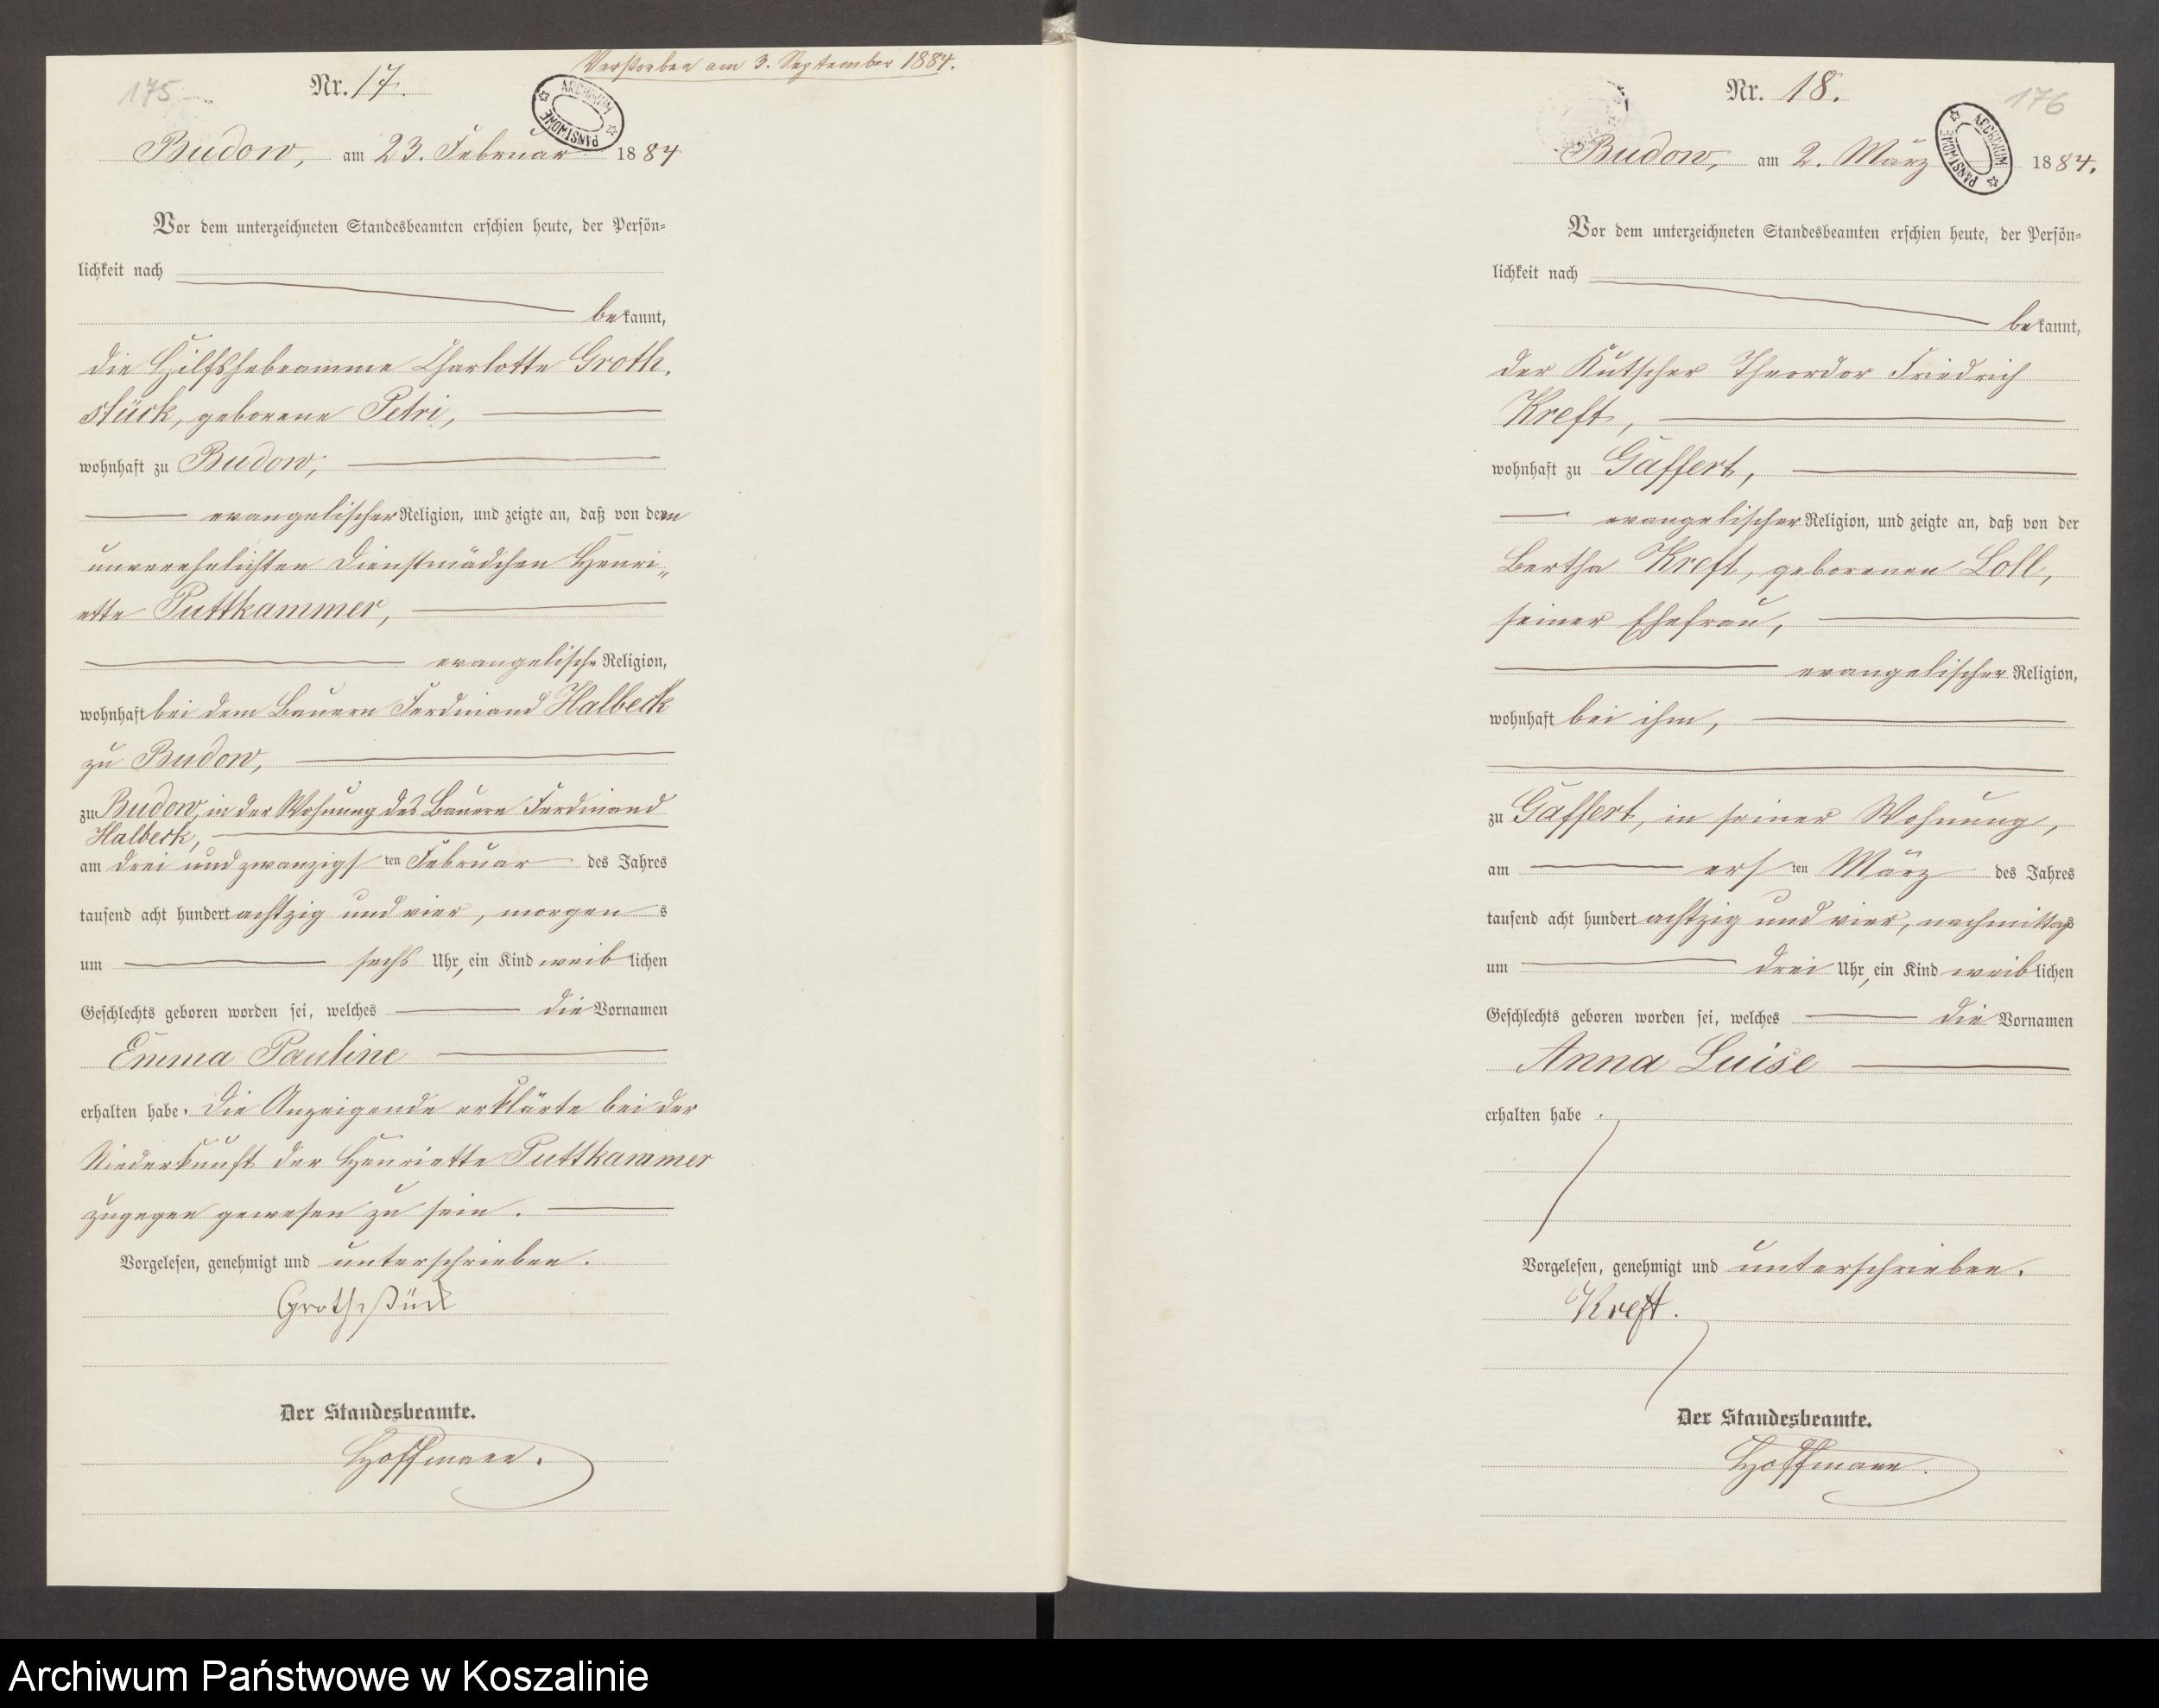 Verstorben am 3. September 1884.
175
Nr. 17.
ARCHIWUM PAŃSTWOWE
Budow, am 23. Februar 1884
Vor dem unterzeichneten Standesbeamten erschien heute, der Persön-
lichkeit nach
bekannt,
die Hilfshebeamme Charlotte Groth,
stück, geborene Petri,
wohnhaft zu Budow,
evangelischer Religion, und zeigte an, daß von dem
unverehelichten Dienstmädchen Henri„
ette Puttkammer,
evangelische Religion,
wohnhaft bei dem Bauern Ferdinand Halbeck
zu Budow,
zu Budow, in der Wohnung des Bauern Ferdinand
Halbeck,
am drei und zwanzigsten Februar des Jahres
tausend acht hundert achtzig und vier, morgens
um sechs Uhr, ein Kind weiblichen
Geschlechts geboren worden sei, welches die Vornamen
Emma Pauline
erhalten habe. Die Anzeigende erklärte bei der
Niederkunft der Henriette Puttkammer
zugegen gewesen zu sein.
Vorgelesen, genehmigt und unterschrieben.
Grothstück
Der Standesbeamte.
Hoffmann.
Nr. 18.
176
ARCHIWUM PAŃSTWOWE
Budow, am 2. März 1884.
Vor dem unterzeichneten Standesbeamten erschien heute, der Persön-
lichkeit nach
bekannt,
der Kutscher Theordor Friedrich
Kreft,
wohnhaft zu Gaffert,
evangelischer Religion, und zeigte an, daß von der
Bertha Kreft, geborenen Loll,
seiner Ehefrau,
evangelischer Religion,
wohnhaft bei ihm,
zu Gaffert, in seiner Wohnung,
am ersten März des Jahres
tausend acht hundert achtzig und vier, nachmittags
um drei Uhr, ein Kind weiblichen
Geschlechts geboren worden sei, welches die Vornamen
Anna Luise
erhalten habe.
Vorgelesen, genehmigt und unterschrieben.
Kreft.
Der Standesbeamte.
Hoffmann.
Archiwum Państwowe w Koszalinie